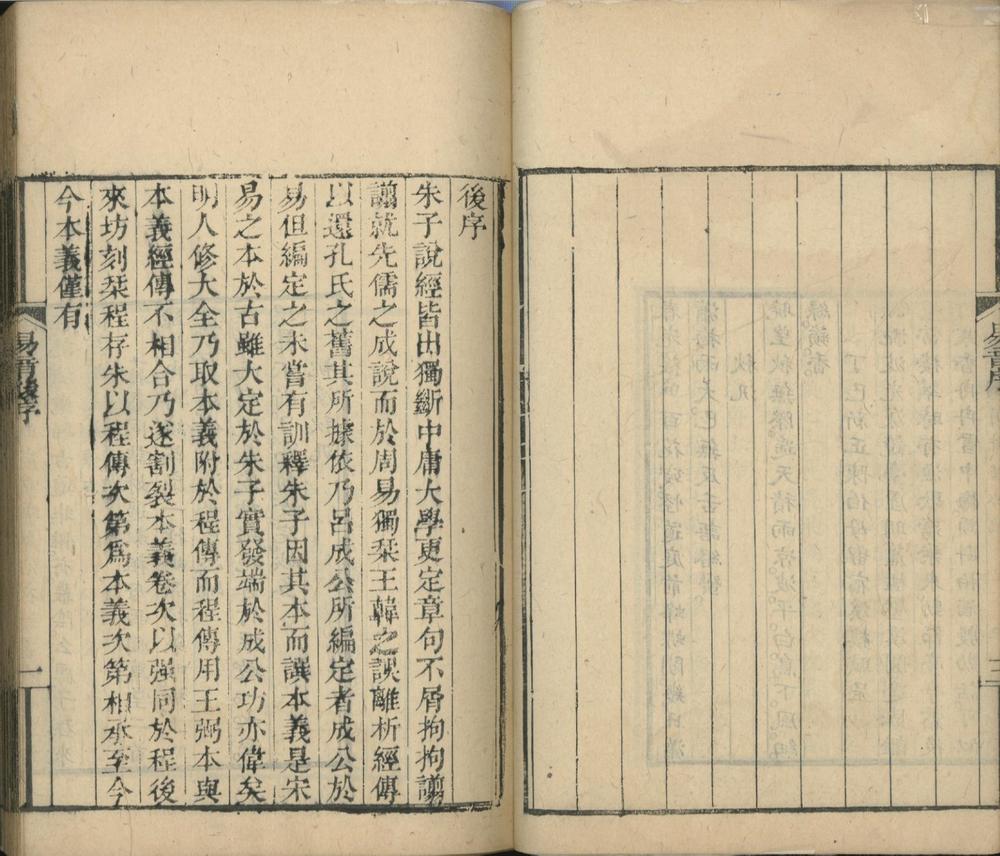 後序
朱子說經皆出獨斷中庸大學更定章句不屑拘拘謭
謭就先儒之成說而於周易獨栞王韓之誤離析經傳
以還孔氏之舊其所據依乃呂成公所編定者成公於
易但編定之未嘗有訓釋朱子因其本而譔本義是宋
易之本於古雖大定於朱子實發端於成公功亦偉矣
明人修大全乃取本義附於程傳而程傳用王弼本與
本義經傳不相合乃遂割裂本義卷次以强同於程後
來坊刻栞程存朱以程傳次第爲本義次第相承至今
今本義僅有
易音後序
一
三